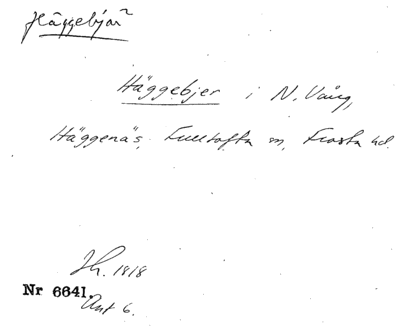 Häggebjär
Häggebjer i N. Vång,
Häggenäs, Fulltofta sn, Frosta hd.
Jh. 1818
Nr 6641.
Akt 6.